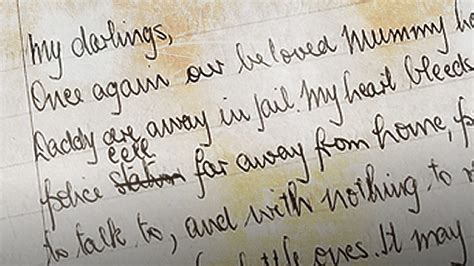 My darlings,
Once again our beloved Mummy ha
Daddy are away in jail. My heart bleeds
cell
police station far away from home, p
to talk to, and with nothing to r
little ones. It may